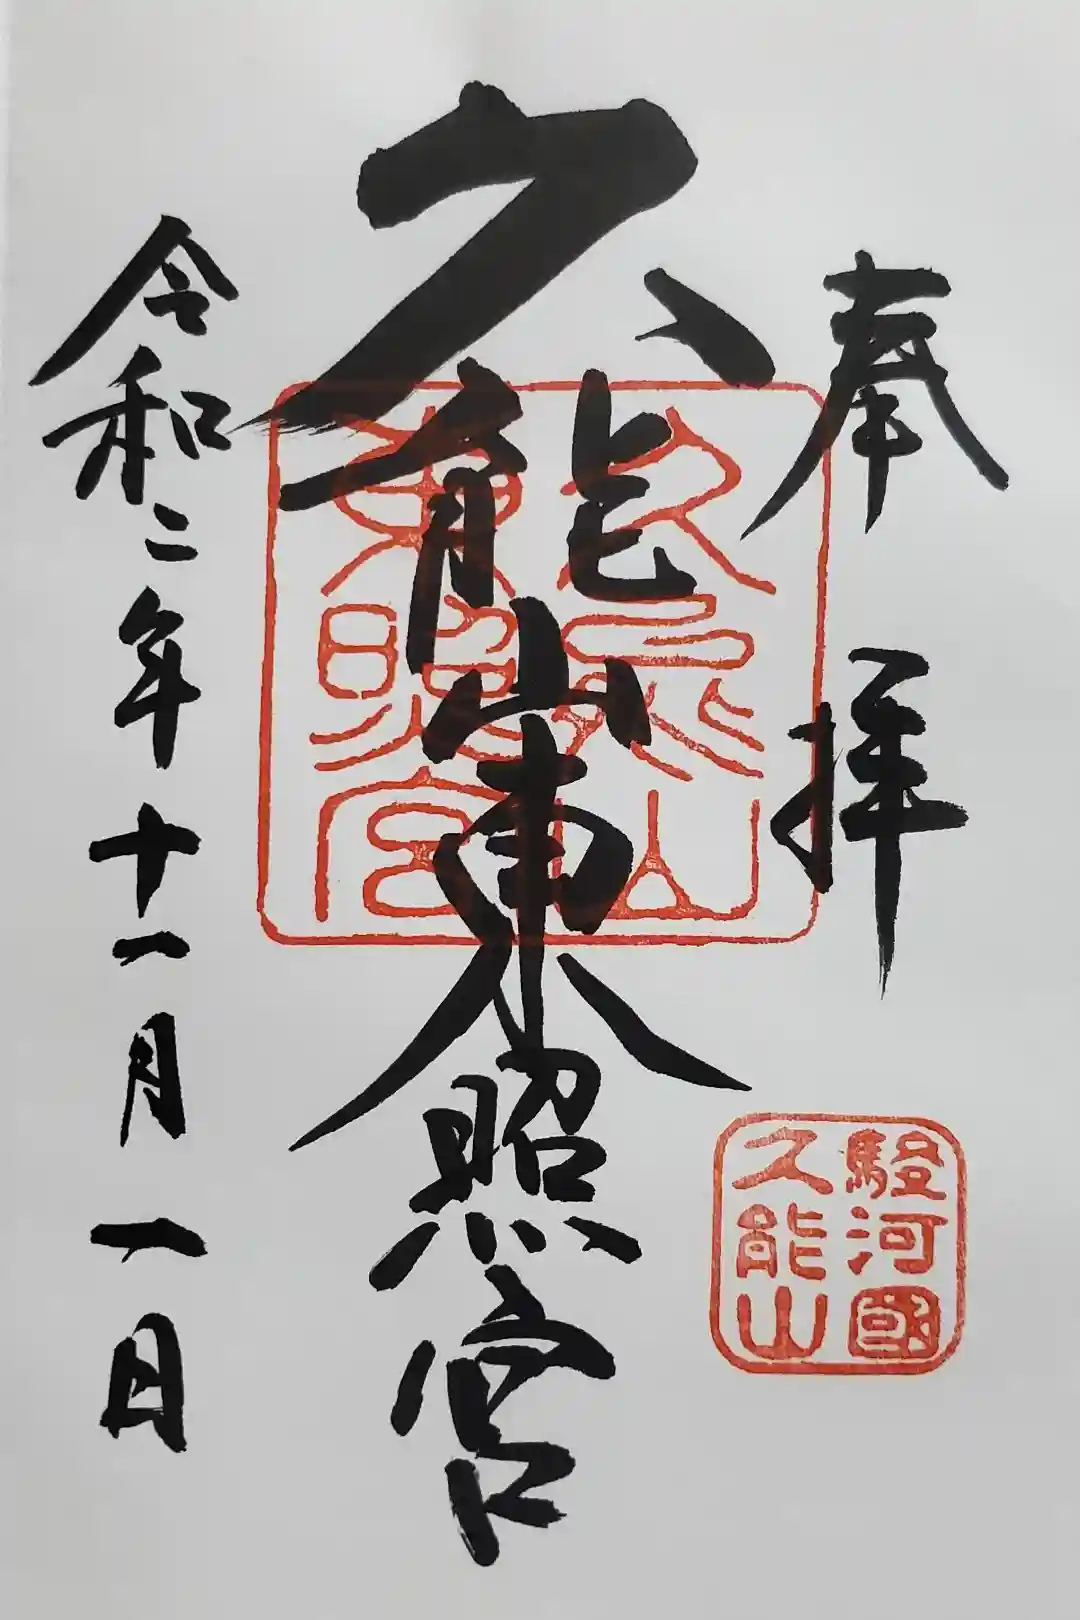 奉拝
久能山東照宮
令和二年十一月一日
久能山
東照宮
駿河國
久能山